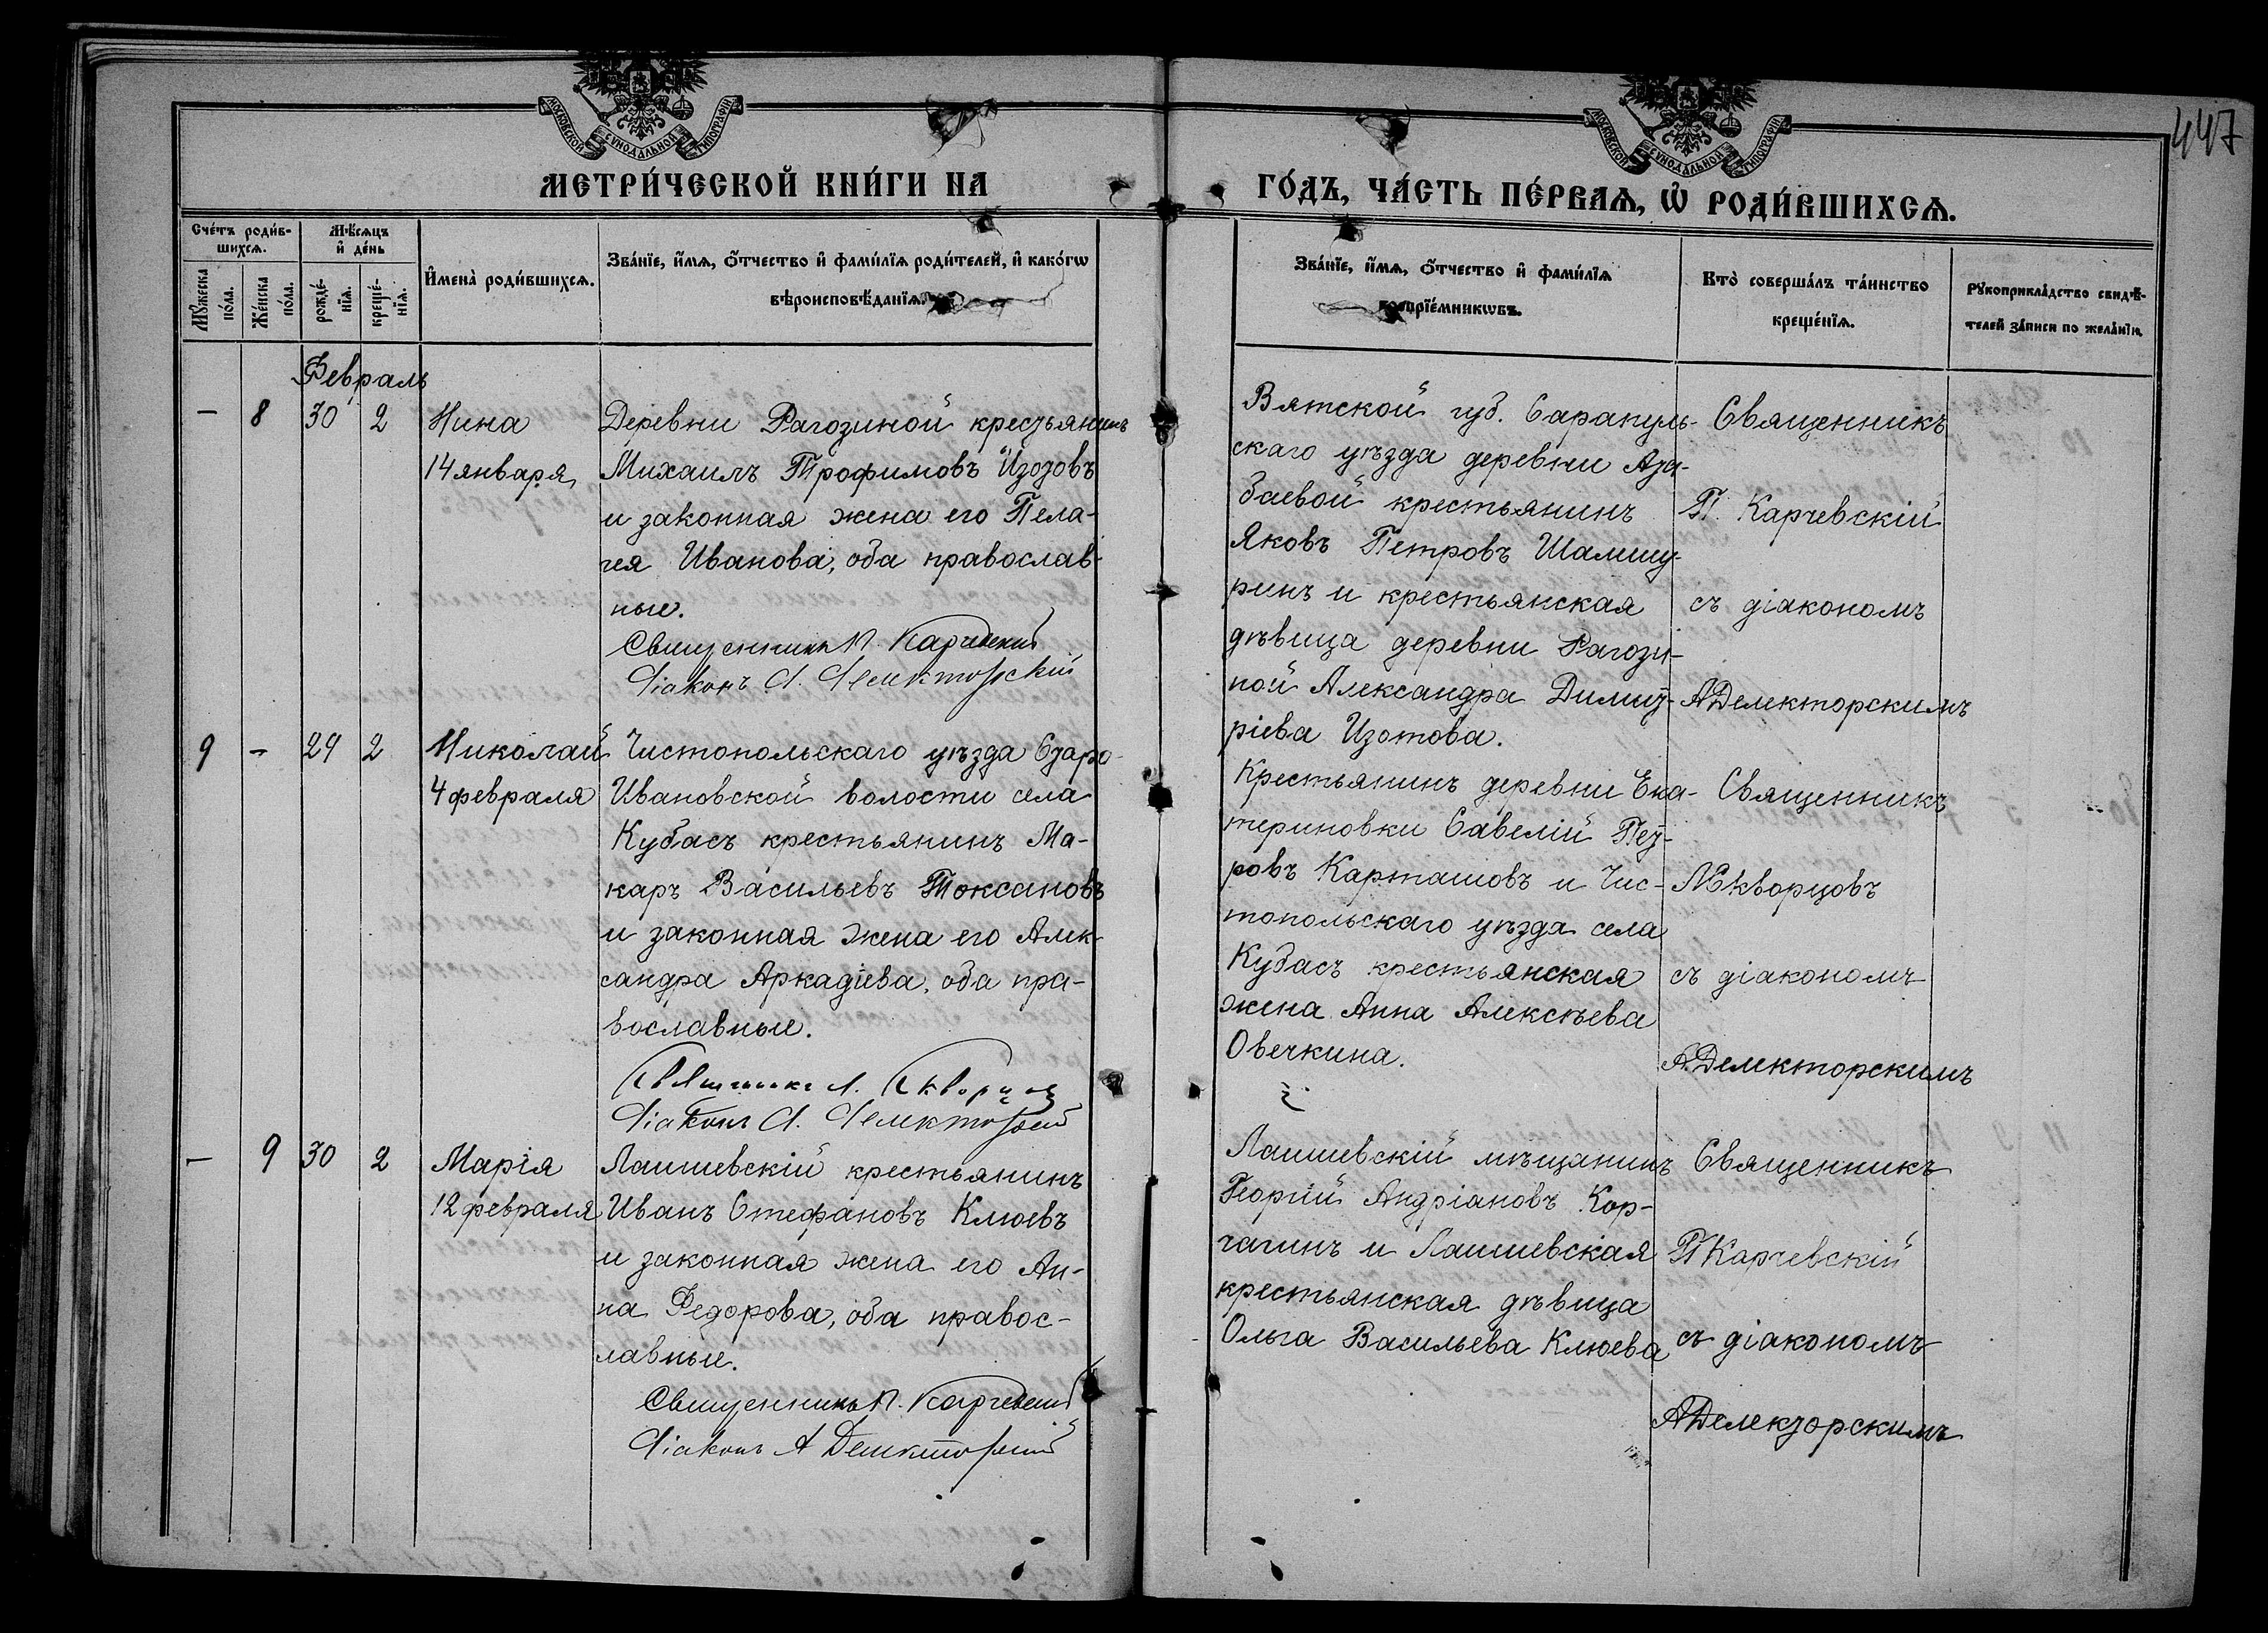 447
МОСКОВСКОЙ СѴНОДАЛЬНОЙ ТИПОГРАФІИ
МОСКОВСКОЙ СѴНОДАЛЬНОЙ ТИПОГРАФІИ
МЕТРИ́ЧЕСКОЙ КНИ́ГИ НА
ГО́ДЪ, ЧА́СТЬ ПЕ́РВАѦ, Ѡ҆ РОДИ́ВШИХСѦ.
Сче́тъ роди́в-
шихсѧ.
Мѣ́сѧцъ
и҆ де́нь
Мꙋ́жеска
по́ла.
Же́нска
по́ла.
рожде́-
нїѧ.
креще́-
нїѧ.
И҆мена̀ роди́вшихсѧ.
Зва́нїе, и҆́мѧ, ѻ҆́тчество и҆ фами́лїѧ роди́телей, и҆ како́гѡ
вѣроисповѣ́данїѧ.
Зва́нїе, и҆́мѧ, ѻ҆́тчество и҆ фами́лїѧ
воспрїе́мникѡвъ.
Кто̀ соверша́лъ та́инство
креще́нїѧ.
Рꙋкоприкла́дство свидѣ́-
телей за́писи по жела́нїю.
Февраль
— 8 30 2
Нина
14 января
Деревни Рагозиной крестьянинъ
Михаилъ Трофимовъ Изозовъ
и законная жена его Пела-
гея Иванова, оба православ-
ные.
Священникъ П. Карчевскій
Діаконъ А. Делекторскій
Вятской губ. Сарапуль-
скаго уѣзда деревни Аза-
баевой крестьянинъ
Яковъ Петровъ Шамшу-
ринъ и крестьянская
дѣвица деревни Рагози-
ной Александра Димит-
ріева Изотова.
Священникъ
П. Карчевскій
съ діакономъ
А Делекторскимъ
9 – 29 2
Николай
4 февраля
Чистопольскаго уѣзда Старо-
Ивановской волости села
Кубасъ крестьянинъ Ма-
каръ Васильевъ Токсановъ
и законная жена его Алек-
сандра Аркадіева, оба пра-
вославные.
Священникъ Л. Скворцов
Діаконъ А. Делекторскій
Крестьянинъ деревни Ека-
териновки Савелій Пет-
ровъ Карташовъ и Чис-
топольскаго уѣзда села
Кубасъ крестьянская
жена Анна Алексѣева
Овечкина.
Священникъ
Л Скворцовъ
съ діакономъ
А. Делекторскимъ
— 9 30 2
Марія
12 февраля
Лаишевскій крестьянинъ
Иванъ Стефановъ Клюевъ
и законная жена его Ан-
на Федорова, оба правос-
лавные.
Священникъ П. Карчевскій
Діаконъ А Делекторскій
Лаишевскій мѣщанинъ
Георгій Андріановъ Кор-
чагинъ и Лаишевская
крестьянская дѣвица
Ольга Васильева Клюева
Священникъ
П Карчевскій
съ діакономъ
А Делекторскимъ